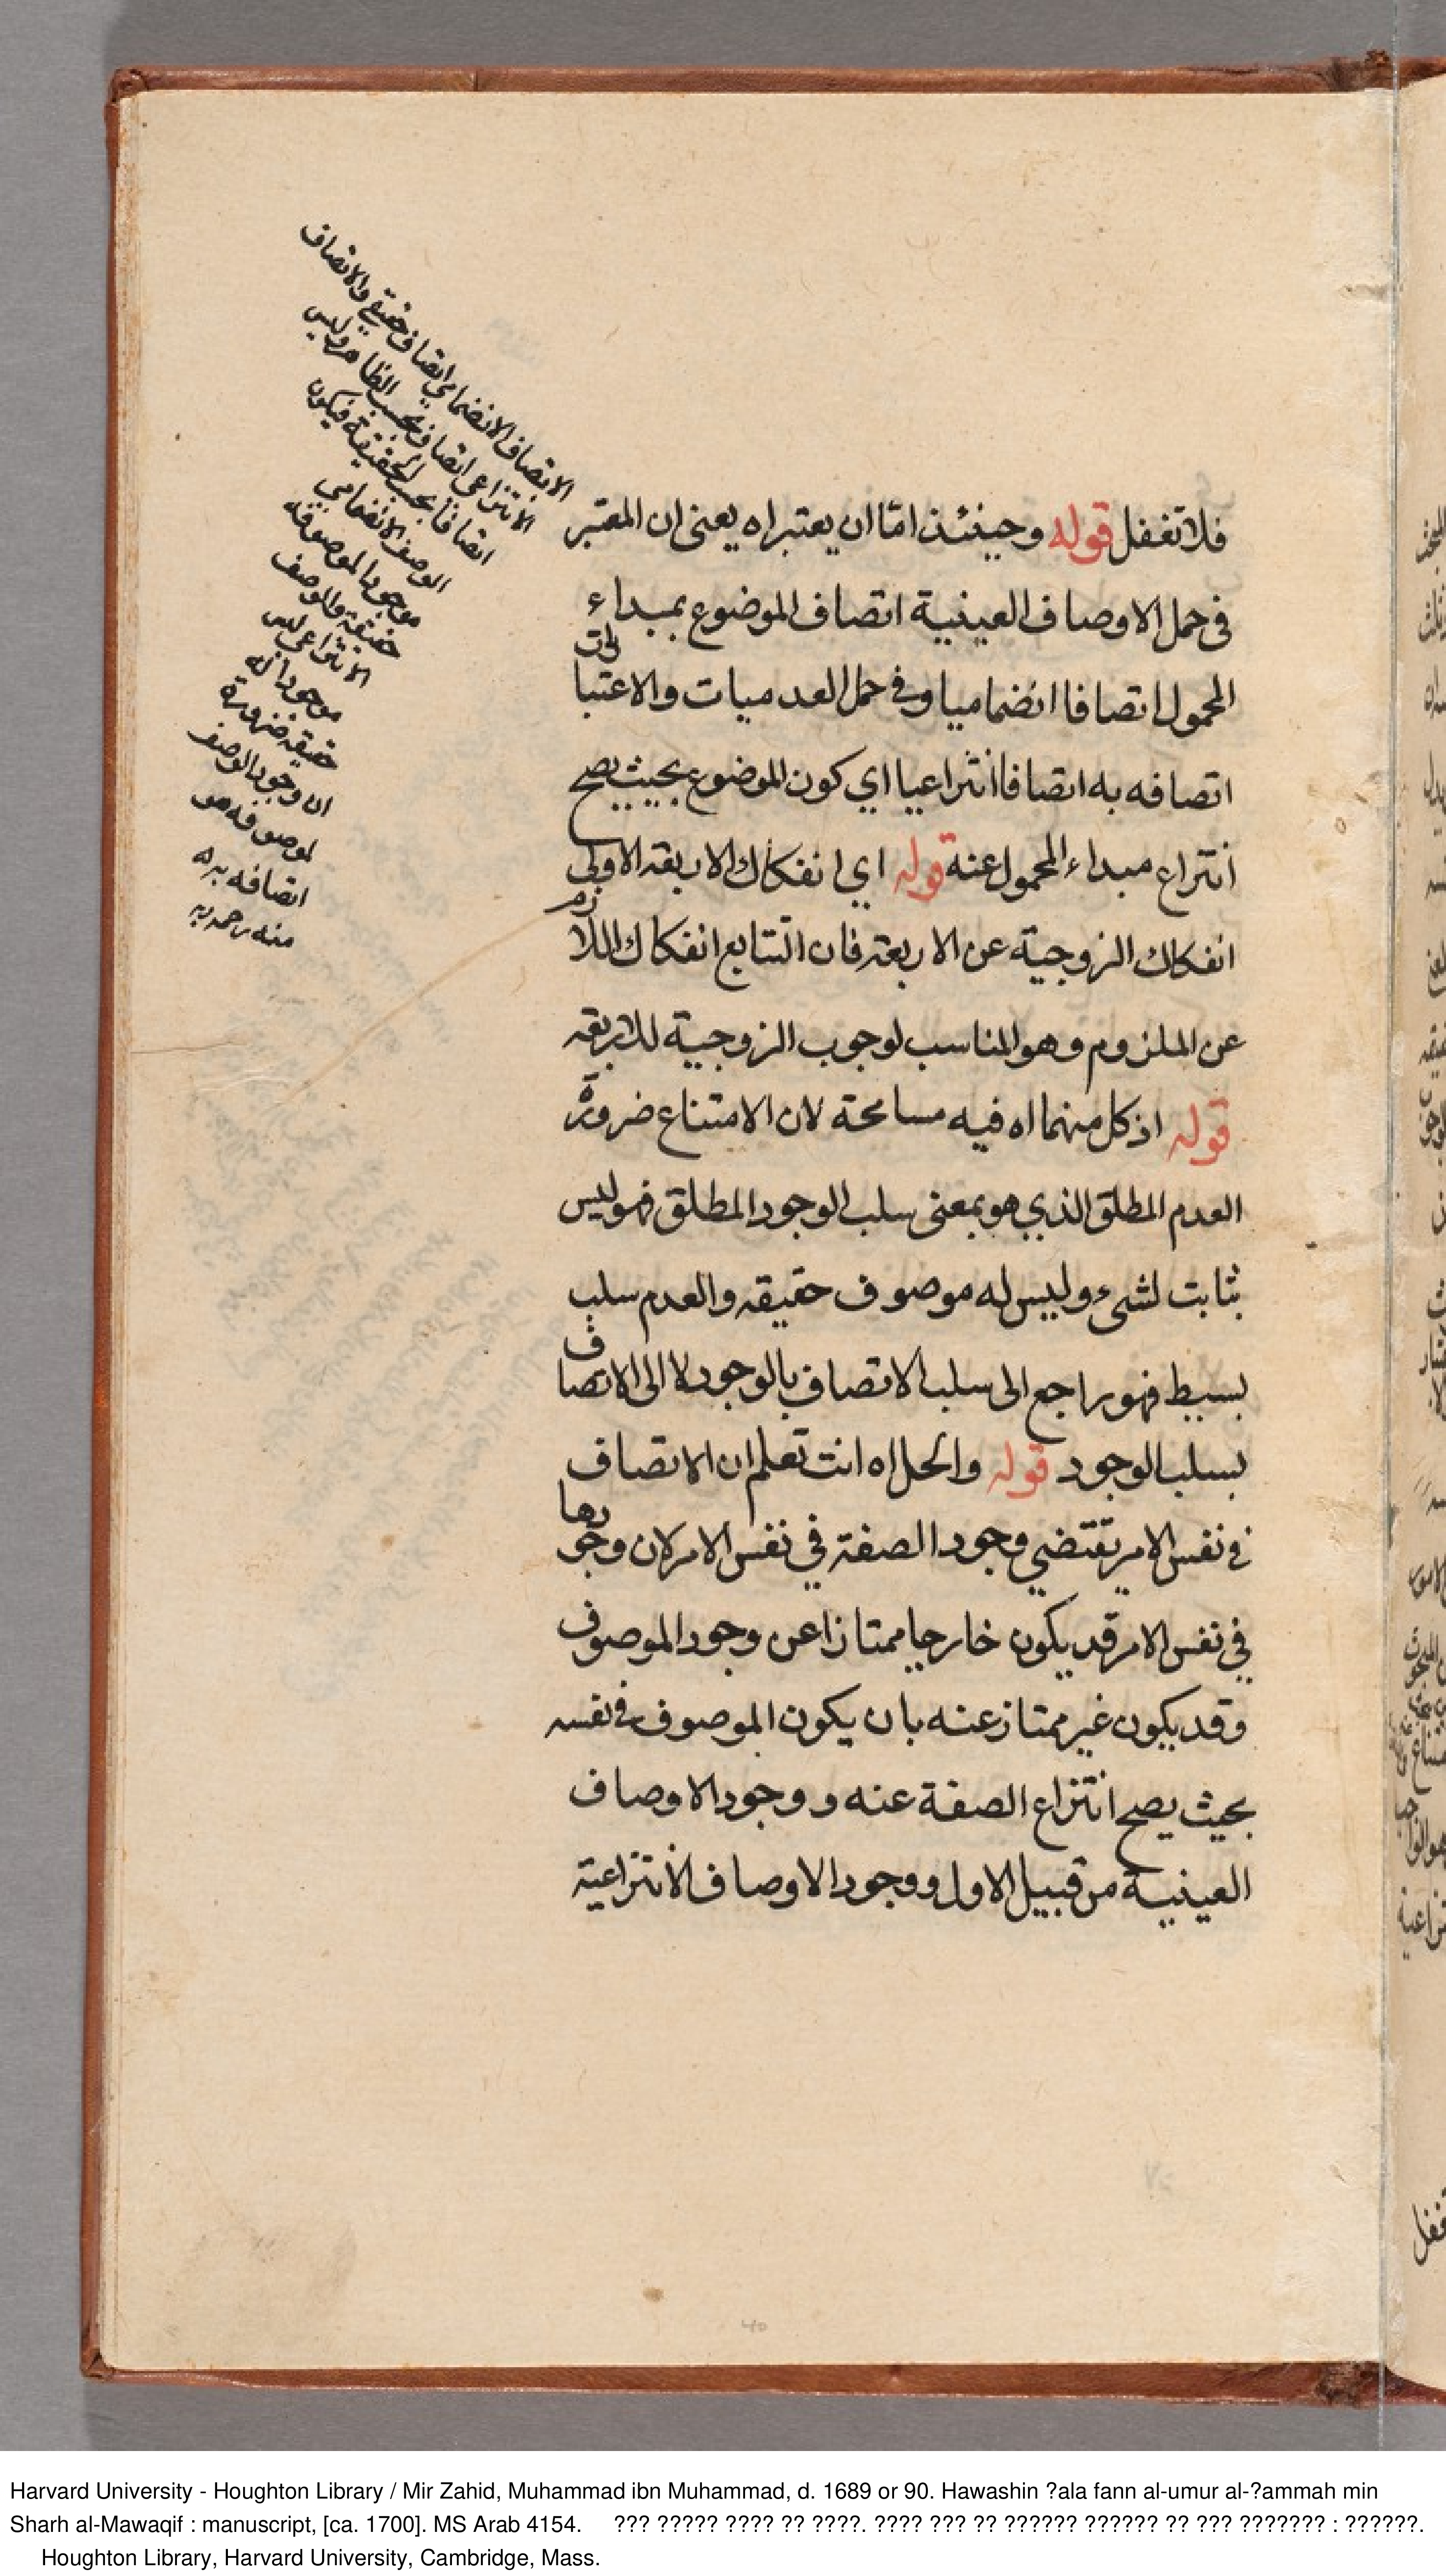 فلا تغفل قوله وحينئذ امّا ان يعتبر اه يعنى ان المعتبر
فى حمل الاوصاف العينية اتصاف الموضوع بمبداء
المحمول اتصافا انضماميا وفى حمل العدميات والاعتباريات
اتصافه به اتصافا انتزاعيا اي كون الموضوع بحيث يصح
انتزاع مبداء المحمول عنه قوله اي انفكاك الاربعة الاولى
انفكاك الزوجية عن الاربعة فان التتابع انفكاك اللازم
عن الملزوم وهو المناسب لوجوب الزوجية للاربعة
قوله اذ كل منهما اه فيه مسامحة لان الامتناع ضرورة
العدم المطلق الذي هو بمعنى سلب الوجود المطلق فهو ليس
بثابت لشىء وليس له موصوف حقيقة والعدم سلب
بسيط فهو راجع الى سلب الاتصاف بالوجود لا الى الاتصاف
بسلب الوجود قوله والحل اه انت تعلم ان الاتصاف
فى نفس الامر يقتضي وجود الصفة في نفس الامر لان وجودها
في نفس الامر قد يكون خارجيا ممتازا عن وجود الموصوف
وقد يكون غير ممتاز عنه بان يكون الموصوف فى نفسه
بحيث يصح انتزاع الصفة عنه و وجود الاوصاف
العينية من قبيل الاول ووجود الاوصاف الانتزاعية
الاتصاف الانضمامي اتصاف حقيقي والاتصاف
الانتزاعى اتصاف بحسب الظاهر وليس
اتصافا بحسب الحقيقة فيكون
الوصف الانضمامي
موجودا لموصوفه
حقيقة والوصف
الانتزاعى ليس
موجودا له
حقيقة ضرورة
ان وجود الوصف
لموصوفه هو
اتصافه به
منه رحمه ربه
Harvard University - Houghton Library / Mir Zahid, Muhammad ibn Muhammad, d. 1689 or 90. Hawashin ?ala fann al-umur al-?ammah min
Sharh al-Mawaqif : manuscript, [ca. 1700]. MS Arab 4154. ??? ????? ???? ?? ????. ???? ??? ?? ?????? ?????? ?? ??? ??????? : ??????.
Houghton Library, Harvard University, Cambridge, Mass.